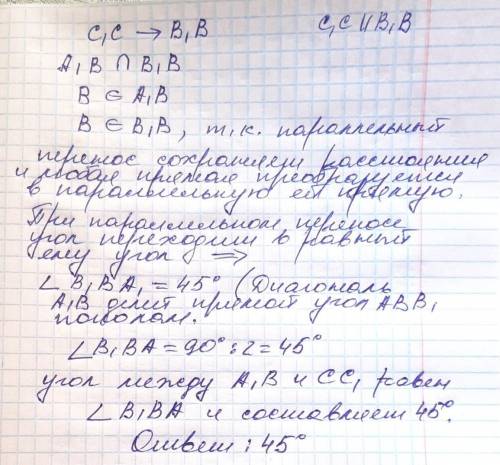 C₁C → B₁B C₁C ∥ B₁B
A₁B ∩ B₁B
B ∈ A₁B
B ∈ B₁B, т.к. параллельный
перенос сохраняет расстояние
и любая прямая преобразуется
в параллельную ей прямую.
При параллельном переносе
угол переходит в равный
ему угол ⇒
∠B₁BA₁ = 45° (Диагональ
A₁B делит прямой угол ABB₁
пополам.
∠B₁BA = 90° : 2 = 45°
угол между A₁B и CC₁ равен
∠B₁BA и составляет 45°.
Ответ: 45°